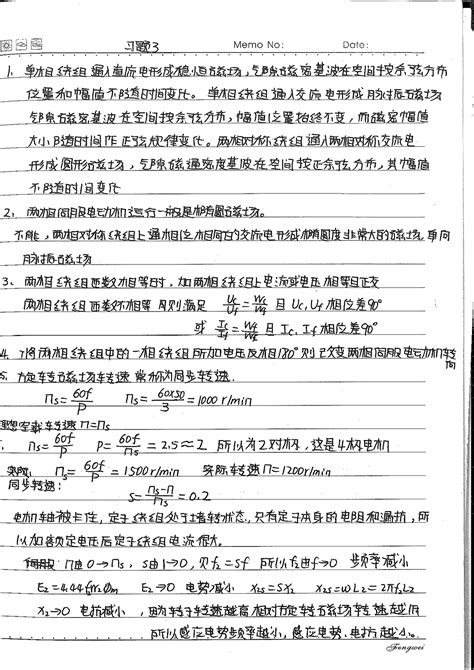 习题3
Memo No: Date:
1、单相绕组通入直流电形成稳恒磁场,气隙磁密基波在空间按余弦方布
位置和幅值不随时间变化。单相绕组通入交流电形成脉振磁场
气隙磁密基波在空间按余弦方布,幅值位置始终不变,而磁密幅值
大小随时间作正弦规律变化。两相对称绕组通入两相对称交流电
形成圆形磁场,气隙磁通密度基波在空间按正余弦方布,其幅值
不随时间变化
2、两相伺服电动机运行一般是椭圆磁场。
不能,两相对称绕组上通相位相同的交流电形成椭圆度非常大的磁场,单向
脉振磁场
3、两相绕组匝数相等时,加两相绕组上电流或电压相等且正交
两相绕组匝数不相等 月则满足 Uc/Uf = Wc/Wf 且 Uc,Uf相位差90°
或 If/Ic = Wc/Wf 且 Ic、If相位差90°
4、将两相绕组中的一相绕组所加电压反相180°则改变两相伺服电动机转
向
5、方定转磁场转速常称为同步转速.
ns=60f/P ns=60×50/3=1000 r/min
理想空载转速n=ns
ns=60f/P P=60f/ns=2.5≈2 所以为2对极,这是4极电机
实际 ns=60f/P=1500r/min 实际转速n=1200r/min
同步转速:
s=ns-n/ns=0.2
电机轴被卡住,定子绕组处于堵转状态,只有定子本身的电阻和漏抗,所
以加额定电压后定子绕组电流很大。
伺服: n由0→ns, s由1→0, 见f2=sf 所以f2由f→0 频率减小
E2=4.44f2 Φm E2→0 电势减小 X2s=sX2 X2s=ωL2=2πf2L2
X2→0 电抗减小, 因为转子转速越高相对方定转磁场转速越低
所以感应电势频率越小,感应电势、电抗越小。
Fengwei